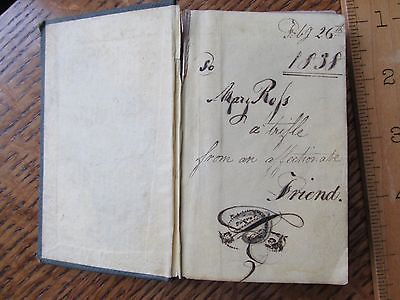 Feby 26th
1838
To
Mary Ross
a trifle
from an affectionate
Friend.